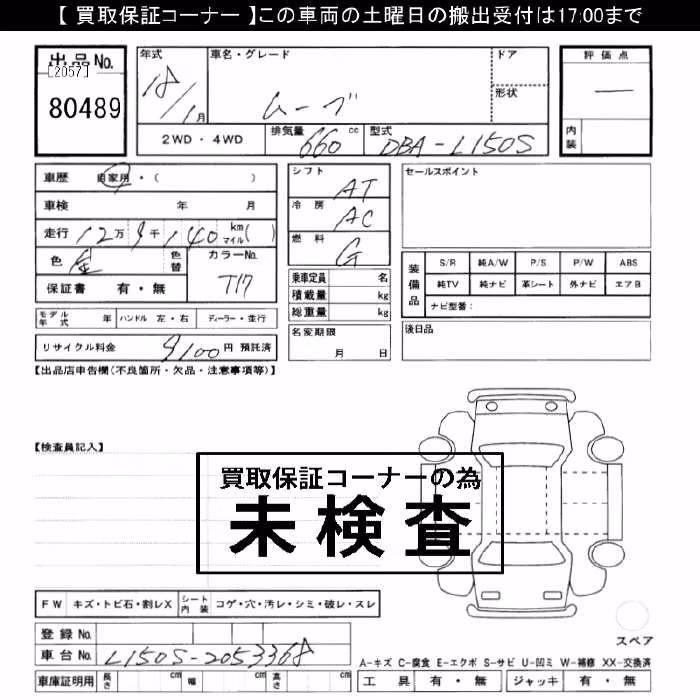 【 買取保証コーナー 】この車両の土曜日の搬出受付は17:00まで
出品No.
[2057]
80489
年式
18/1月
車名・グレード
ムーブ
ドア
形状
2WD・4WD
排気量 660 cc
型式 DBA-L150S
評価点
—
内装
車歴 自家用・( )
車検 年 月
走行 12万9千140 km マイル( )
色 金 色替
カラーNo. T17
保証書 有・無
モデル年式 年 ハンドル 左・右 ディーラー・並行
リサイクル料金 9100円 預託済
シフト AT
冷房 AC
燃料 G
乗車定員 名
積載量 kg
総重量 kg
名変期限
月 日
セールスポイント
装備品
S/R 純A/W P/S P/W ABS
純TV 純ナビ 革シート 外ナビ エアB
ナビ型番：
後日品
【出品店申告欄(不良箇所・欠品・注意事項等)】
【検査員記入】
買取保証コーナーの為
未検査
FW キズ・トビ石・割レX シート内装 コゲ・穴・汚レ・シミ・破レ・スレ
登録No.
車台No. L150S-2053368
車庫証明用 長さ cm 幅 cm 高さ cm
スペア
A-キズ C-腐食 E-エクボ S-サビ U-凹ミ W-補修 XX-交換済
工具 有・無 ジャッキ 有・無